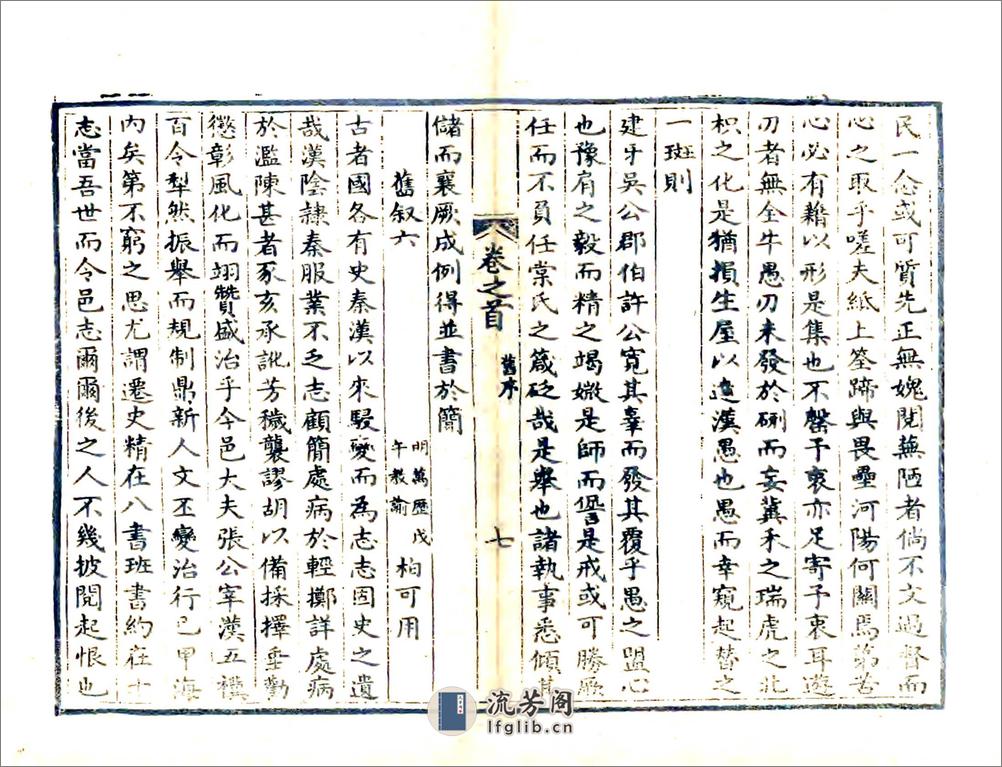 民一念或可質先正無媿閱蕪陋者倘不文過督而
心之取乎嗟夫紙上筌蹄與畏壘河陽何關焉第苦
心必有藉以形是集也不罄予衷亦足寄予衷耳遊
刃者無全牛愚刃未發於硎而妄冀禾之瑞虎之北
枳之化是猶損生屋以遺漢愚也愚而幸窺起替之
一斑則
建牙吳公郡伯許公寬其辜而發其覆乎愚之盟心
也豫肩之毅而精之竭媺是師而僁是戒或可勝厥
任而不負任棠氏之箴砭哉是舉也諸執事悉傾其
卷之首
舊序
七
儲而襄厥成例得並書於簡
舊叙六
明萬歷戊
午教諭
柏可用
古者國各有史秦漢以來駸變而為志志固史之遺
哉漢陰隷秦服業不乏志顧簡處病於輕擲詳處病
於濫陳甚者豕亥承訛芳穢襲謬胡以備採擇垂勸
懲彰風化而翊贊盛治乎今邑大夫張公宰漢五禩
百令犁然振舉而規制鼎新人文丕變治行已甲海
內矣第不窮之思尤謂遷史精在八書班書約在十
志當吾世而令邑志爾爾後之人不幾披閱起恨也
流芳阁
lfglib.cn